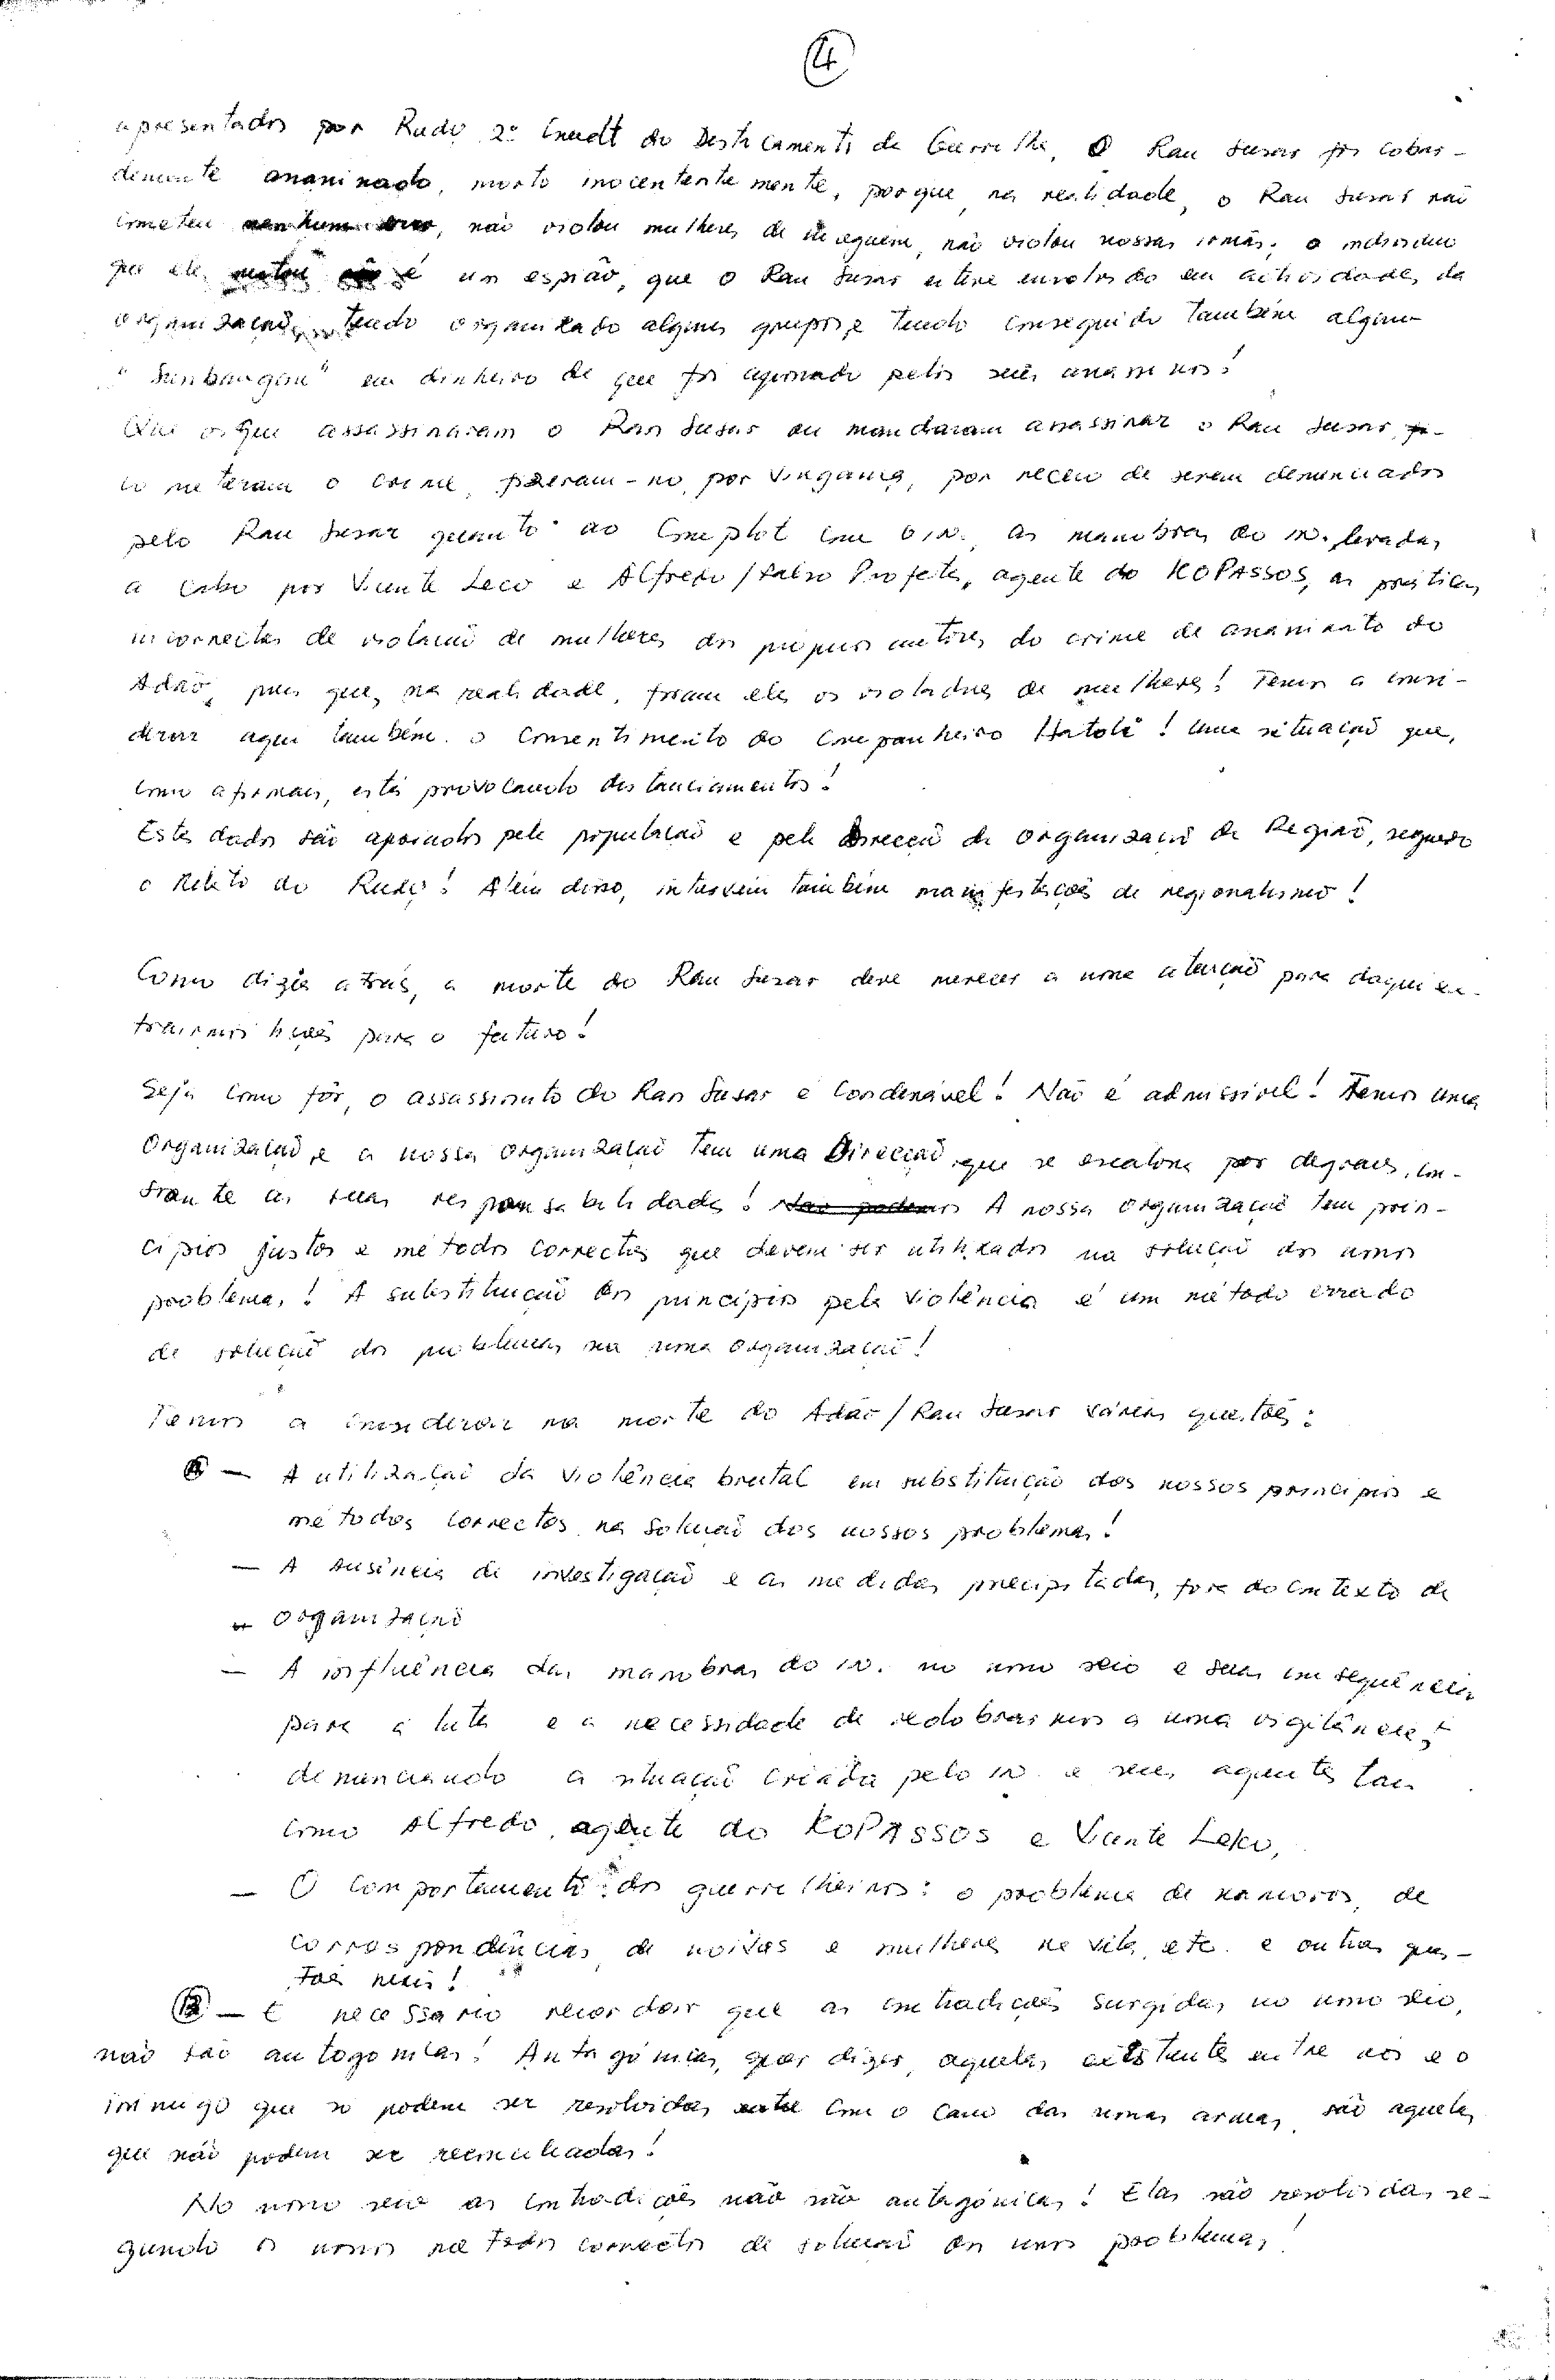 4
apresentados por Rudy 2º Cmdt do Destacamento de Guerrilha, O Rau Susar foi cobar-
demente assassinado, morto inocentemente, porque, na realidade, o Rau Susar não
cometeu nenhum, não violou mulheres de ninguém, não violou nossas irmãs; o indivíduo
que ele matou é um espião, que o Rau Susar esteve envolvido em actividades da
organização, tendo organizado alguns grupos e tendo conseguido também algum
em dinheiro de que foi pelos seus assassinos!
Que os que assassinaram o Rau Susar ou mandaram assassinar o Rau Susar,
cometeram o crime, fizeram-no, por vingança, por receio de serem denunciados
pelo Rau Susar quanto ao complot com o in., as manobras do in. levadas
a cabo por Vicente Leco e Alfredo/Falso Profeta, agente do KOPASSOS, as práticas
incorrectas de violação de mulheres dos próprios autores do crime de assassinato do
Adão, pois que, na realidade, foram eles os violadores de mulheres! Temos a consi-
derar aqui também o consentimento do Companheiro Hatoli! Uma situação que,
como afirmais, está provocando distanciamentos!
Estes dados são apoiados pela população e pela Direcção da organização da Região, segundo
o relato do Rudy! Além disso, intervêm também manifestações de regionalismo!
Como dizia atrás, a morte do Rau Susar deve merecer a nossa atenção para daqui ex-
trairmos lições para o futuro!
Seja como fôr, o assassinato do Rau Susar é condenável! Não é admissível! Temos uma
Organização, e a nossa organização tem uma Direcção, que se escalona por degraus, con-
soante as suas responsabilidades! Não podemos A nossa organização tem prin-
cípios justos e métodos correctos que devem ser utilizados na solução dos nossos
problemas! A substituição dos princípios pela violência é um método errado
de solução dos problemas na nossa organização!
Temos a considerar na morte do Adão/Rau Susar várias questões:
A — A utilização da violência brutal em substituição dos nossos princípios e
métodos correctos na solução dos nossos problemas!
— A ausência de investigação e as medidas precipitadas, fora do contexto da
organização
— A influência das manobras do in. no nosso seio e suas consequências
para a luta e a necessidade de redobrarmos a nossa vigilância,
denunciando a situação criada pelo in. e seus agentes tais
como Alfredo, agente do KOPASSOS e Vicente Leko,
— O comportamento dos guerrilheiros: o problema de namoros, de
correspondências, de noivas e mulheres na vila, etc. e outras ques-
tões mais!
B — É necessário recordar que as contradições surgidas no nosso seio,
não são antogonicas! Antagónicas, quer dizer, aquelas existentes entre nós e o
inimigo que só podem ser resolvidas com o cano das nossas armas, são aquelas
que não podem ser reconciliadas!
No nosso seio as contradições não são antagónicas! Elas são resolvidas se-
gundo os nossos métodos correctos de solução dos nossos problemas!